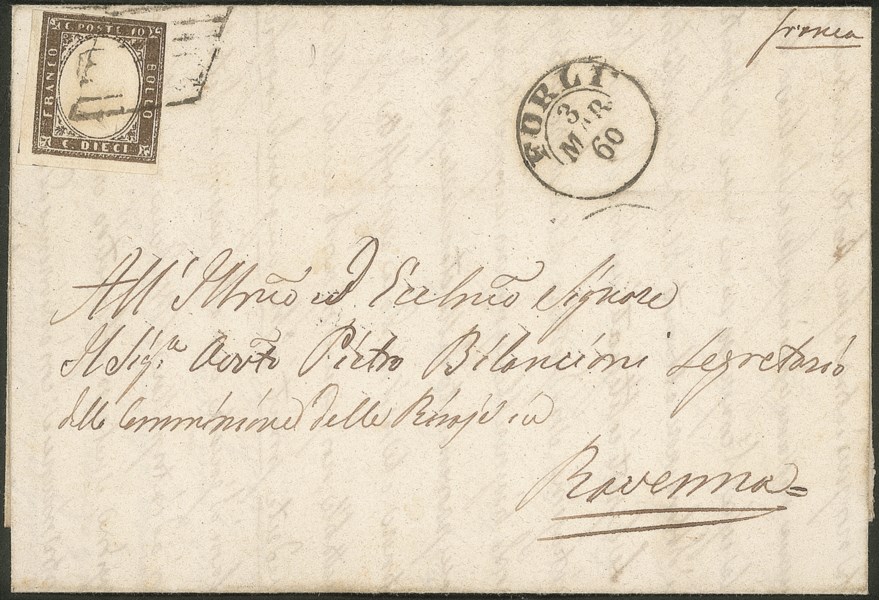 C. POSTE 10
FRANCO
BOLLO
C. DIECI
franca
FORLI'
3
MAR.
60
All' Illmo ed Eccelmo Signore
Il Sig.r Avvto Pietro Bilancioni Segretario
della Commissione delle
Ravenna=